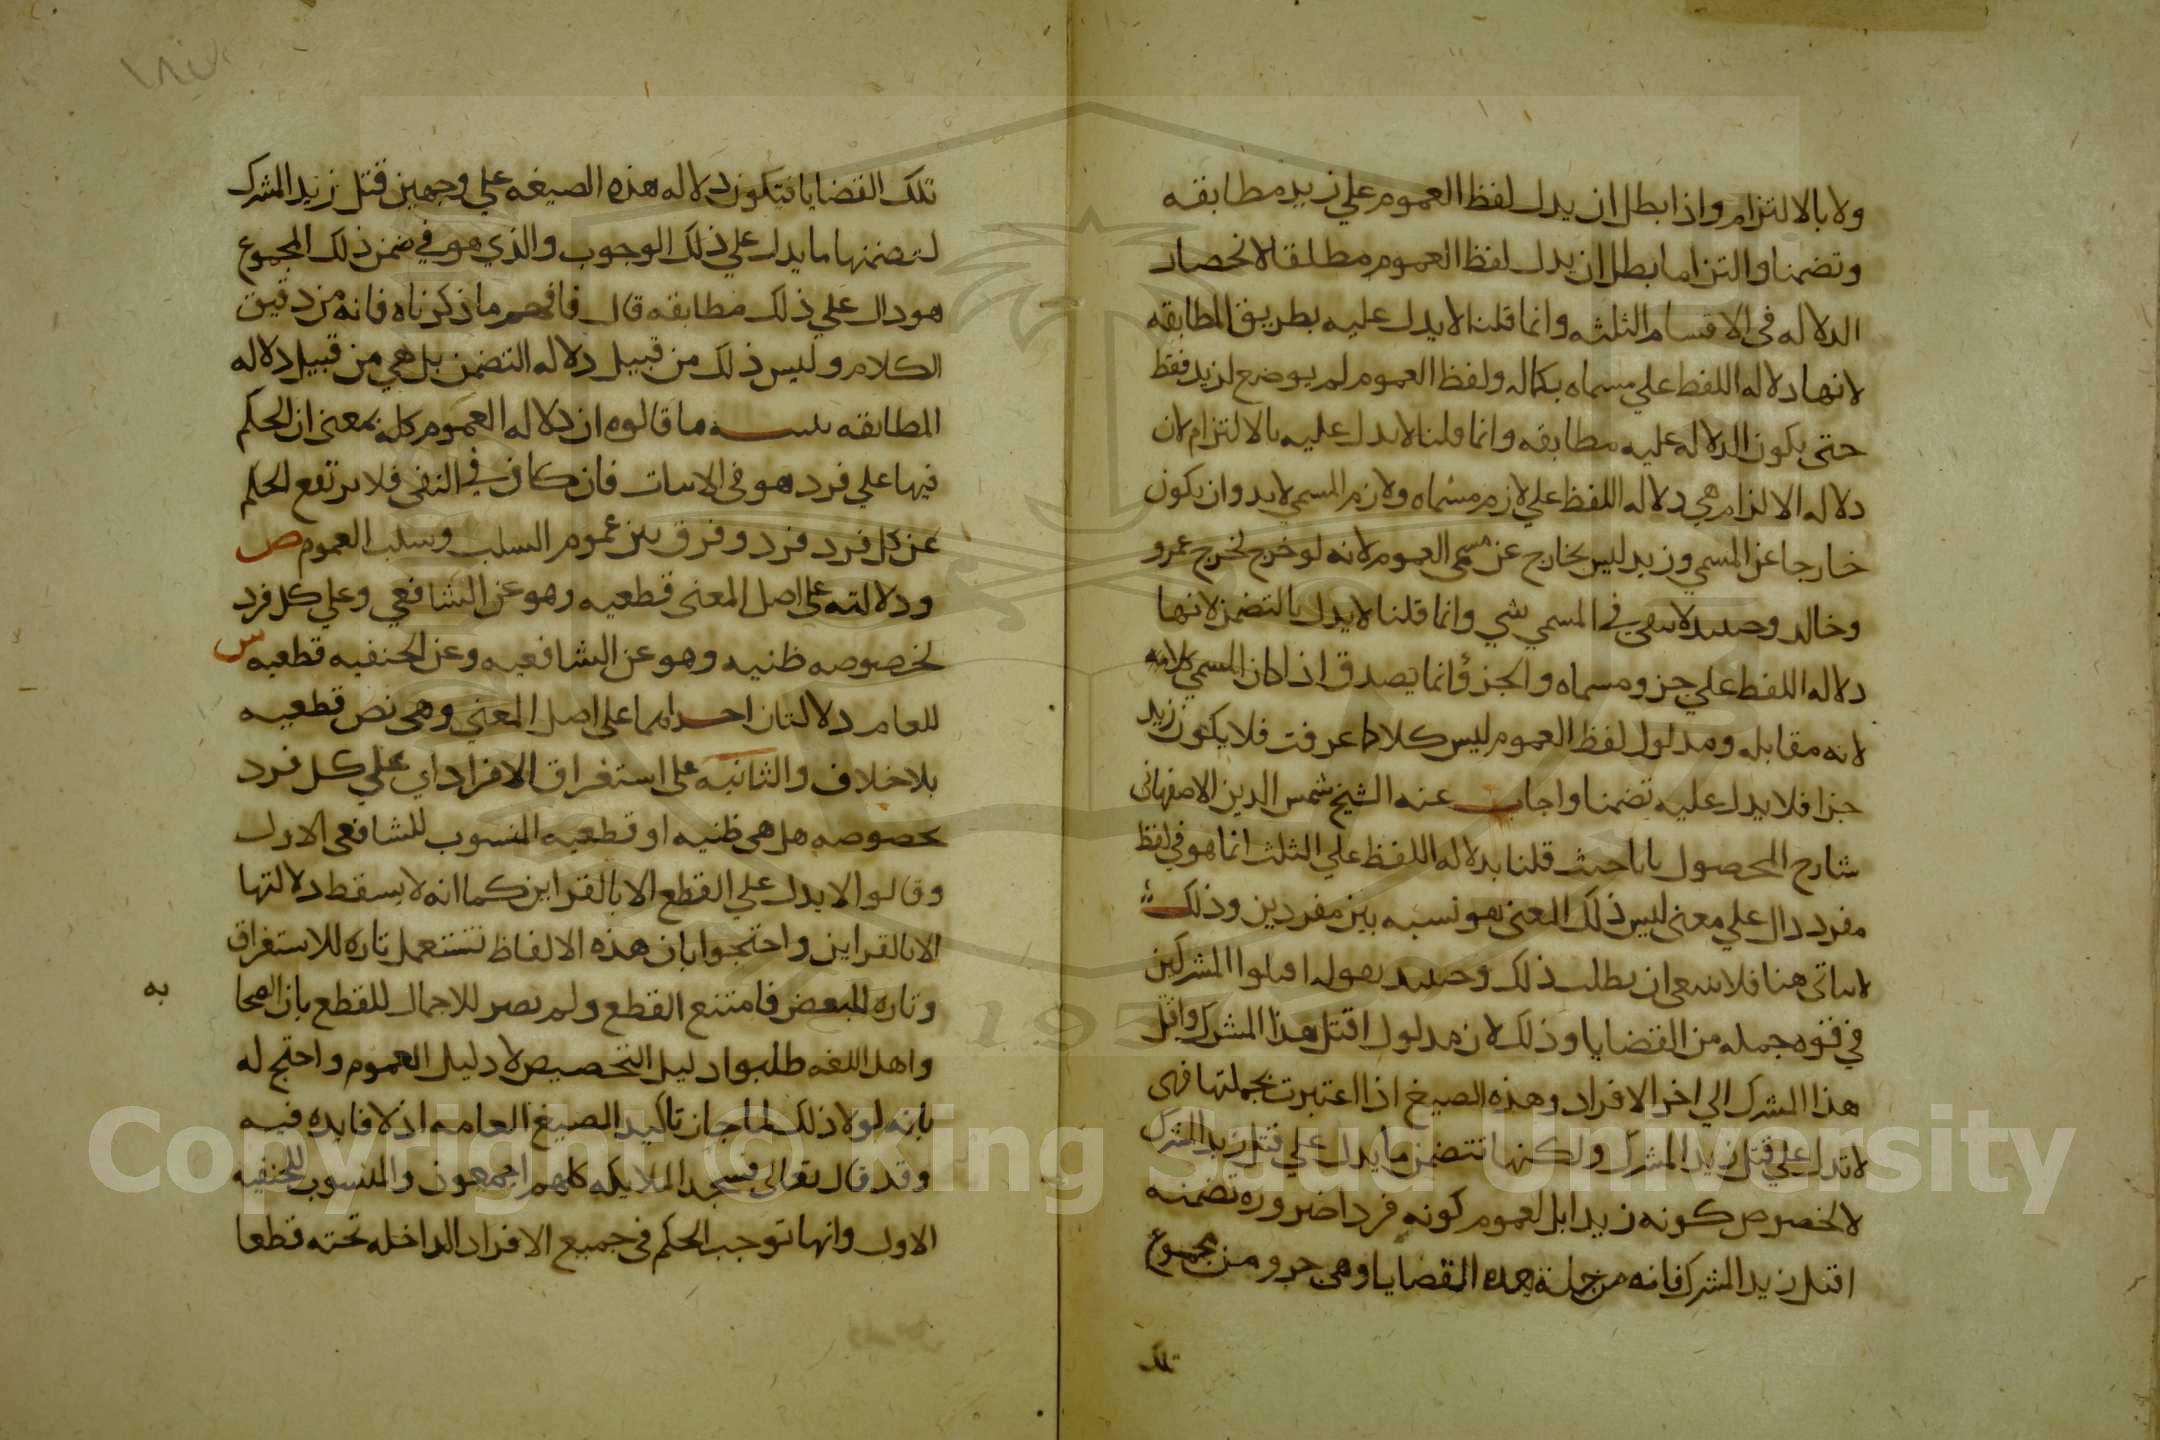 ولا بالالتزام واذا بطل ان يدل لفظ العموم علي زيد مطابقه
وتضمنا والتزاما بطل ان يدل لفظ العموم مطلقا لانحصار
الدلاله في الاقسام الثلثه وانما قلنا لا يدل عليه بطريق المطابقه
لانها دلاله اللفظ علي مسماه بكماله ولفظ العموم لم يوضع لزيد فقط
حتى يكون الدلاله عليه مطابقه وانما قلنا لا يدل عليه بالالتزام لان
دلاله الالتزام هي دلاله اللفظ علي لازم مسماه ولازم المسمي لا بد وان يكون
خارجا عن المسمي وزيد ليس بخارج عن مسمى العموم لانه لو خرج لخرج عمرو
وخالد وحينيد لا يبقى في المسمي شي وانما قلنا لا يدل بالتضمن لانها
دلاله اللفظ علي جزو مسماه والجزؤ انما يصدق اذا كان المسمي كلا لانه
لانه مقابله ومدلول لفظ العموم ليس كلا كما عرفت فلا يكون زيد
جزا فلا يدل عليه تضمنا واجاب عنه الشيخ شمس الدين الاصفهانى
شارح المحصول بانا حيث قلنا بدلاله اللفظ علي الثلث انما هو في لفظ
مفرد دال علي معنى ليس ذلك المعنى هو نسبه بين مفردين وذلك
لا يتاتى هنا فلا ينبغى ان يطلب ذلك وحينيد بقوله اقتلوا المشركين
في قوه جمله من القضايا وذلك لان مدلول اقتل هذا المشرك واقتل
هذا المشرك الي اخر الافراد وهذه الصيغ اذا اعتبرت بجملتها فهى
لا تدل علي قتل زيد المشرك ولكنها تتضمن ما يدل علي قتل زيد المشرك
لا لخصوص كونه زيدا بل لعموم كونه فردا ضروره تضمنه
اقتل زيد المشرك فانه من جملة هذه القضايا وهى جزو من مجموع
تلك
تلك القضايا فيكون دلاله هذه الصيغه علي وجهين قتل زيد المشرك
لتضمنها ما يدل علي ذلك الوجوب والذي هو في ضمن ذلك المجموع
هو دال علي ذلك مطابقه قال فافهم ما ذكرناه فانه من دقيق
الكلام وليس ذلك من قبيل دلاله التضمن بل هي من قبيل دلاله
المطابقه تنبيه ما قالوه ان دلاله العموم كله بمعنى ان الحكم
فيها علي فرد هو فى الاثبات فان كان في النفى فلا يرتفع الحكم
عن كل فرد فرد وفرق بين عموم السلب وسلب العموم ص
ودلالته على اصل المعنى قطعيه وهو عن الشافعي وعلي كل فرد
لخصوصه ظنيه وهو عن الشافعيه وعن الحنفيه قطعيه س
للعام دلالتان احداهما على اصل المعني وهى نص قطعيه
بلا خلاف والثانيه على استغراق الافراد اي علي كل فرد
بخصوصه هل هى ظنيه او قطعيه المنسوب للشافعى الاول
وقالوا لا يدل علي القطع الا بالقراين كما انه لا يسقط دلالتها
الا بالقراين واحتجوا بان هذه الالفاظ تستعمل تاره للاستغراق
وتاره للبعض فامتنع القطع ولم نصر للاجمال للقطع بان الصحا
به
واهل اللغه طلبوا دليل التخصيص لا دليل العموم واحتج له
بانه لولا ذلك لما جاز تاكيد الصيغ العامه اذ لا فايده فيه
وقد قال تعالى فسجد الملايكه كلهم اجمعون والمنسوب للحنفيه
الاول وانها توجب الحكم فى جميع الافراد الداخله تحته قطعا
Copyright © King Saud University